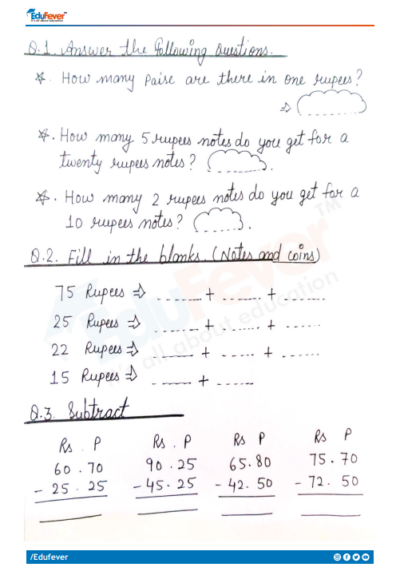 EduFever
Q.1. Answer the following Questions.
☆. How many paise are there in one rupees?
⇒
☆. How many 5 rupees notes do you get for a
twenty rupees notes? .
☆. How many 2 rupees notes do you get for a
10 rupees notes? .
Q.2. Fill in the blanks. (Notes and coins)
75 Rupees ⇒ ------- + ------- + -------
25 Rupees ⇒ ------- + ------- + ------
22 Rupees ⇒ ------ + ------ + ------
15 Rupees ⇒ ------ + ------
Q.3. Subtract
Rs . P Rs . P Rs P Rs P
60 . 70 90 . 25 65 . 80 75 . 70
- 25 . 25 - 45 . 25 - 42 . 50 - 72 . 50
EduFever
all about education
TM
/Edufever